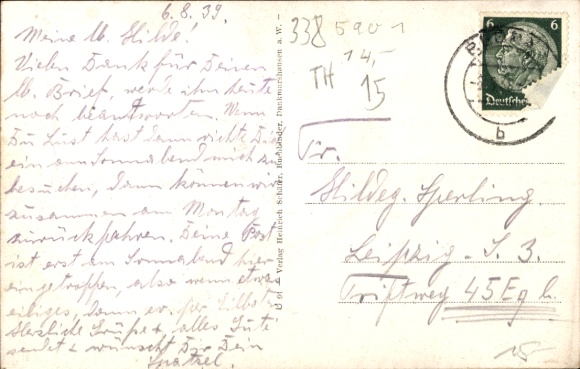 6.8.39.
Meine lb. Hilde!
Vielen Dank für Deinen
lb. Brief, werde ihn heute
noch beantworten. Wenn
Du Lust hast dann richte Dich
ein am Sonnabend mich zu
besuchen, dann können wir
zusammen am Montag
zurückfahren. Deine Post
ist erst am Sonnabend hier
eingetroffen, also wenn etwas
eiliges, dann ev. per Eilboten
Herzliche Grüße &, alles Gute
sendet & wünscht Dir Dein
Spatzel.
Verlag Heinrich Schäfer, Buchhändler, Dankmarshausen a. W.
338 5901
14,-
TH 15
6 6
Deutsche
b
Fr.
Hildeg. Sperling.
Leipzig - S. 3.
Triftweg 45 Eg l.
15,-